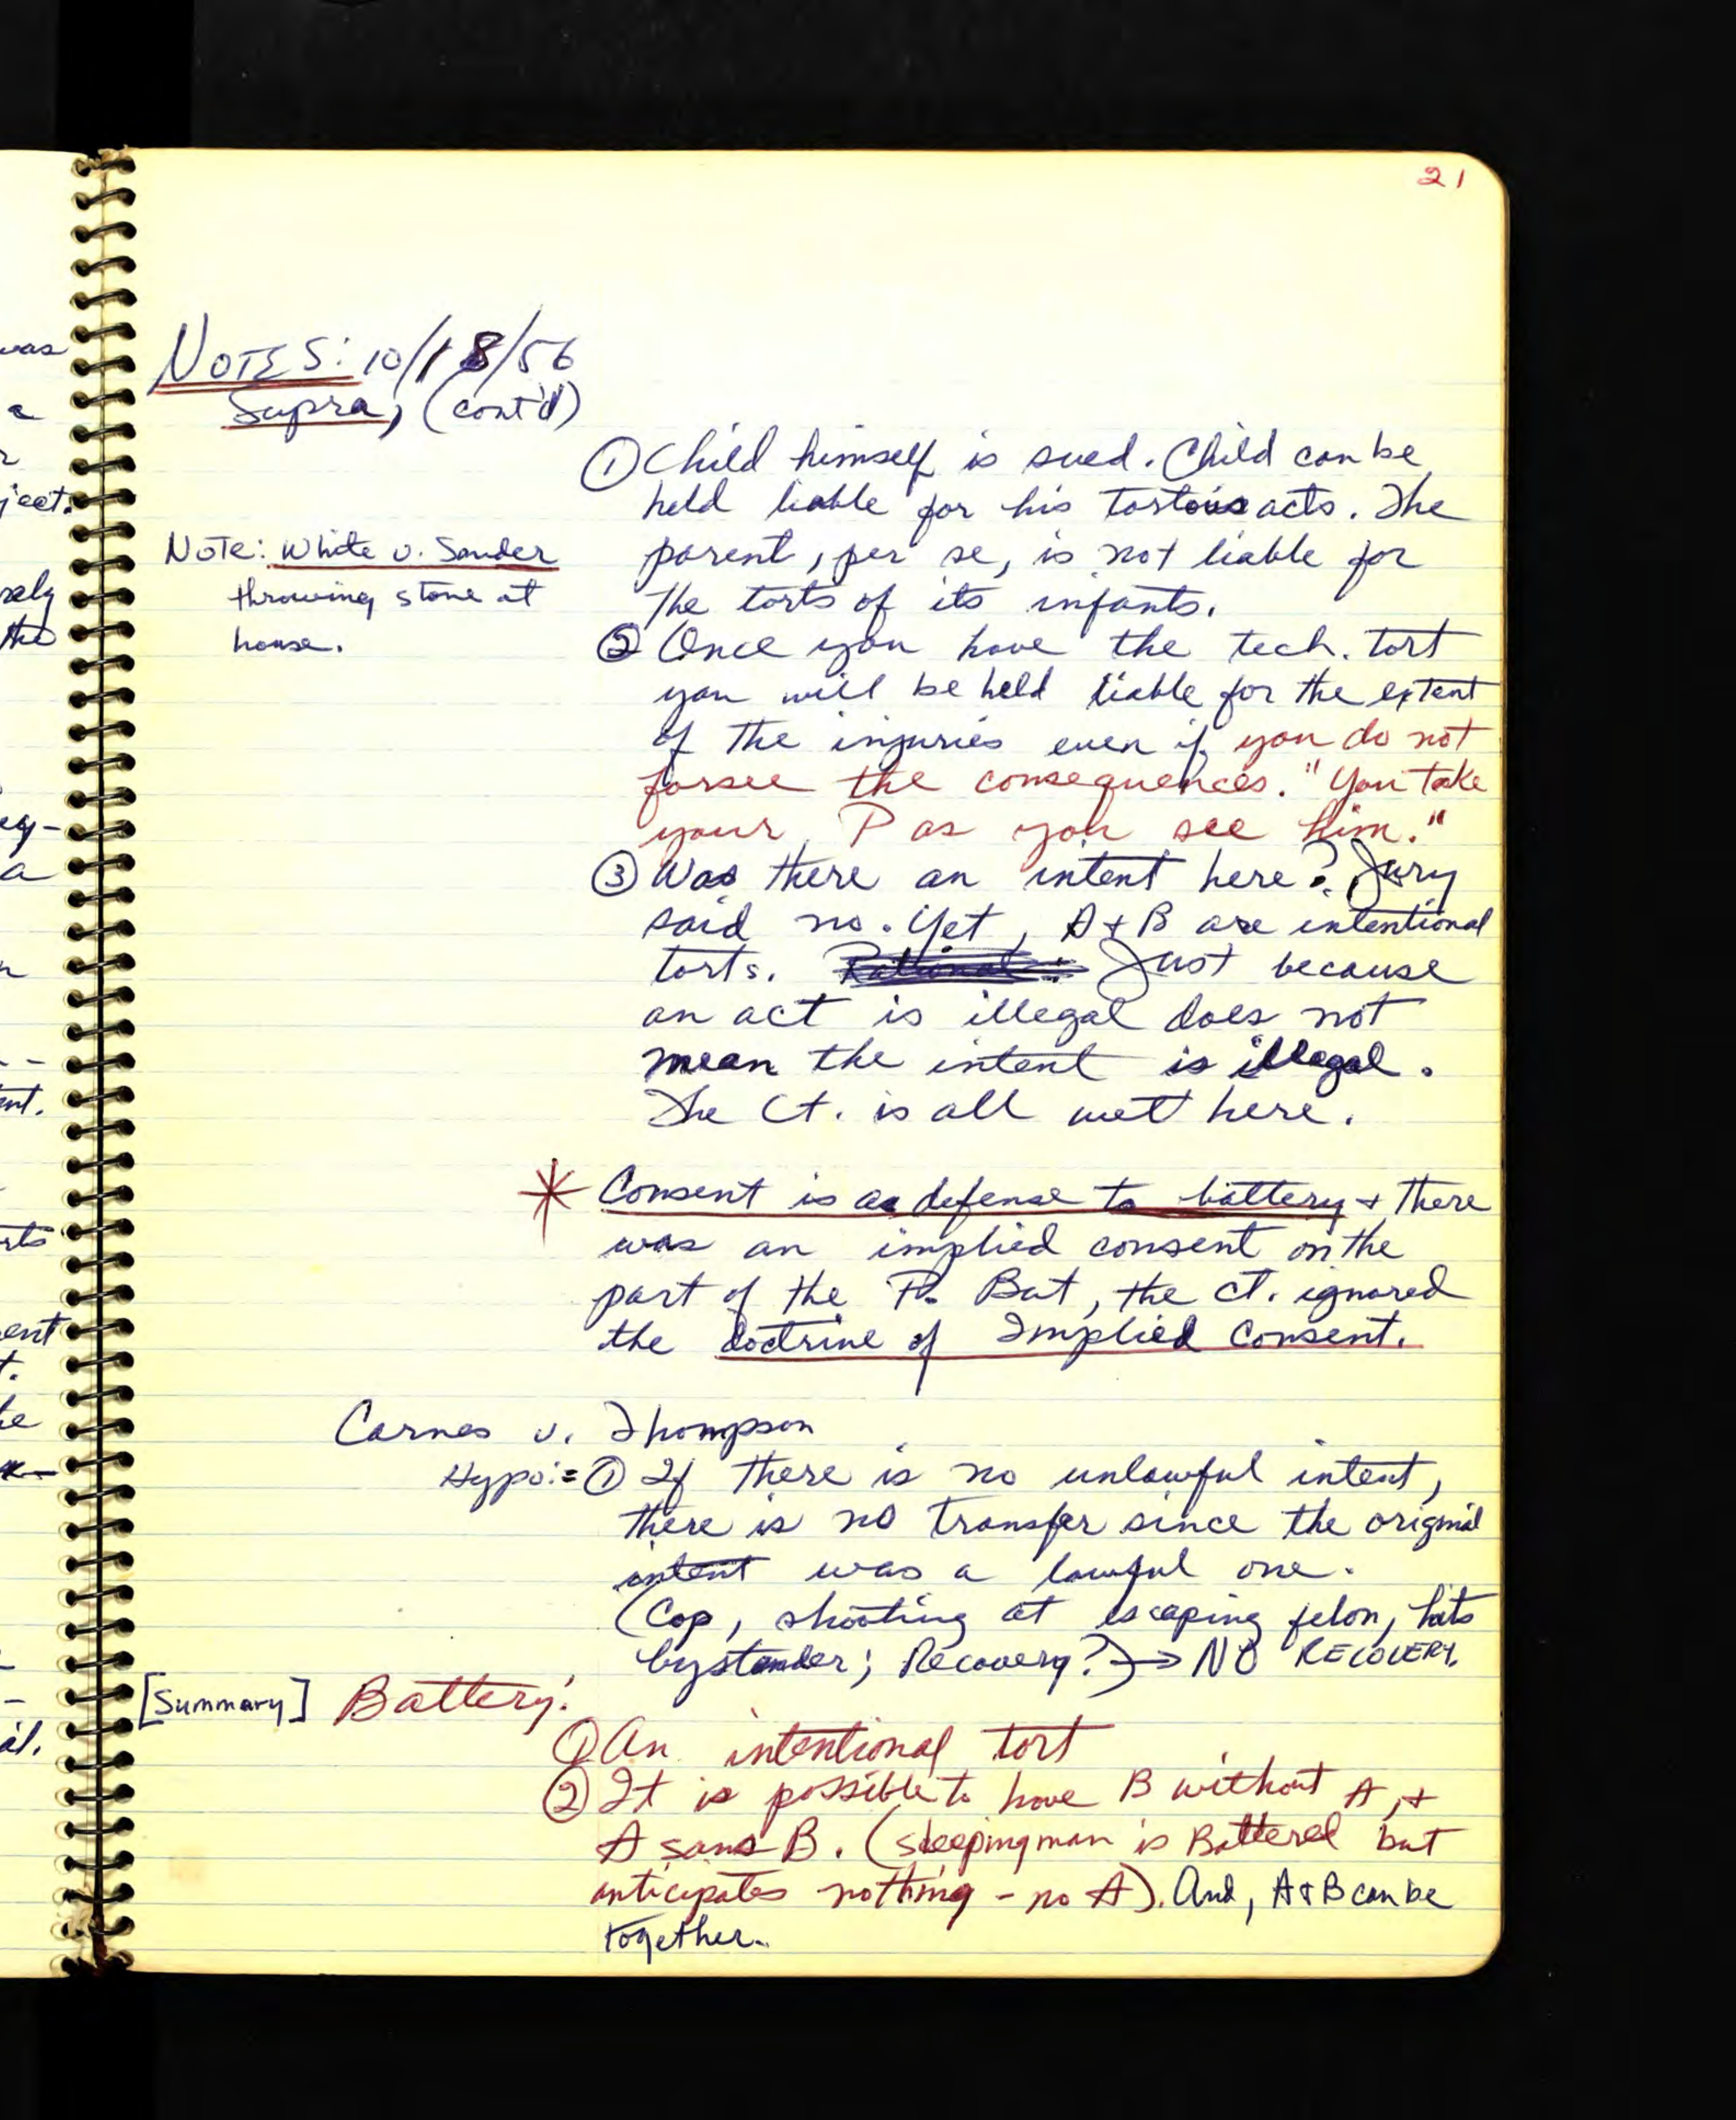 21
NOTES: 10/18/56
Supra, (cont'd)
① Child himself is sued. Child can be
held liable for his tortous acts. The
parent, per se, is not liable for
the torts of its infants.
Note: White v. Sander
throwing stone at
house.
② Once you have the tech. tort
you will be held liable for the extent
of the injuries even if you do not
forsee the consequences. "You take
your P as you see him."
③ Was there an intent here? Jury
said no. Yet, A + B are intentional
torts. Just because
an act is illegal does not
mean the intent is illegal.
The Ct. is all wet here.
* Consent is a defense to battery + there
was an implied consent on the
part of the P. But, the ct. ignored
the doctrine of Implied Consent.
Carnes v. Thompson
Hypo:= ① If there is no unlawful intent,
there is no transfer since the original
intent was a lawful one.
(Cop, shooting at escaping felon, hits
bystander; Recovery?) → NO RECOVERY.
[Summary] Battery:
① An intentional tort
② It is possible to have B without A, +
A sans B. (sleeping man is Battered but
anticipates nothing - no A). And, A & B can be
together.
was
a
ject.
the
eg-
a
nt.
ent
t.
al.